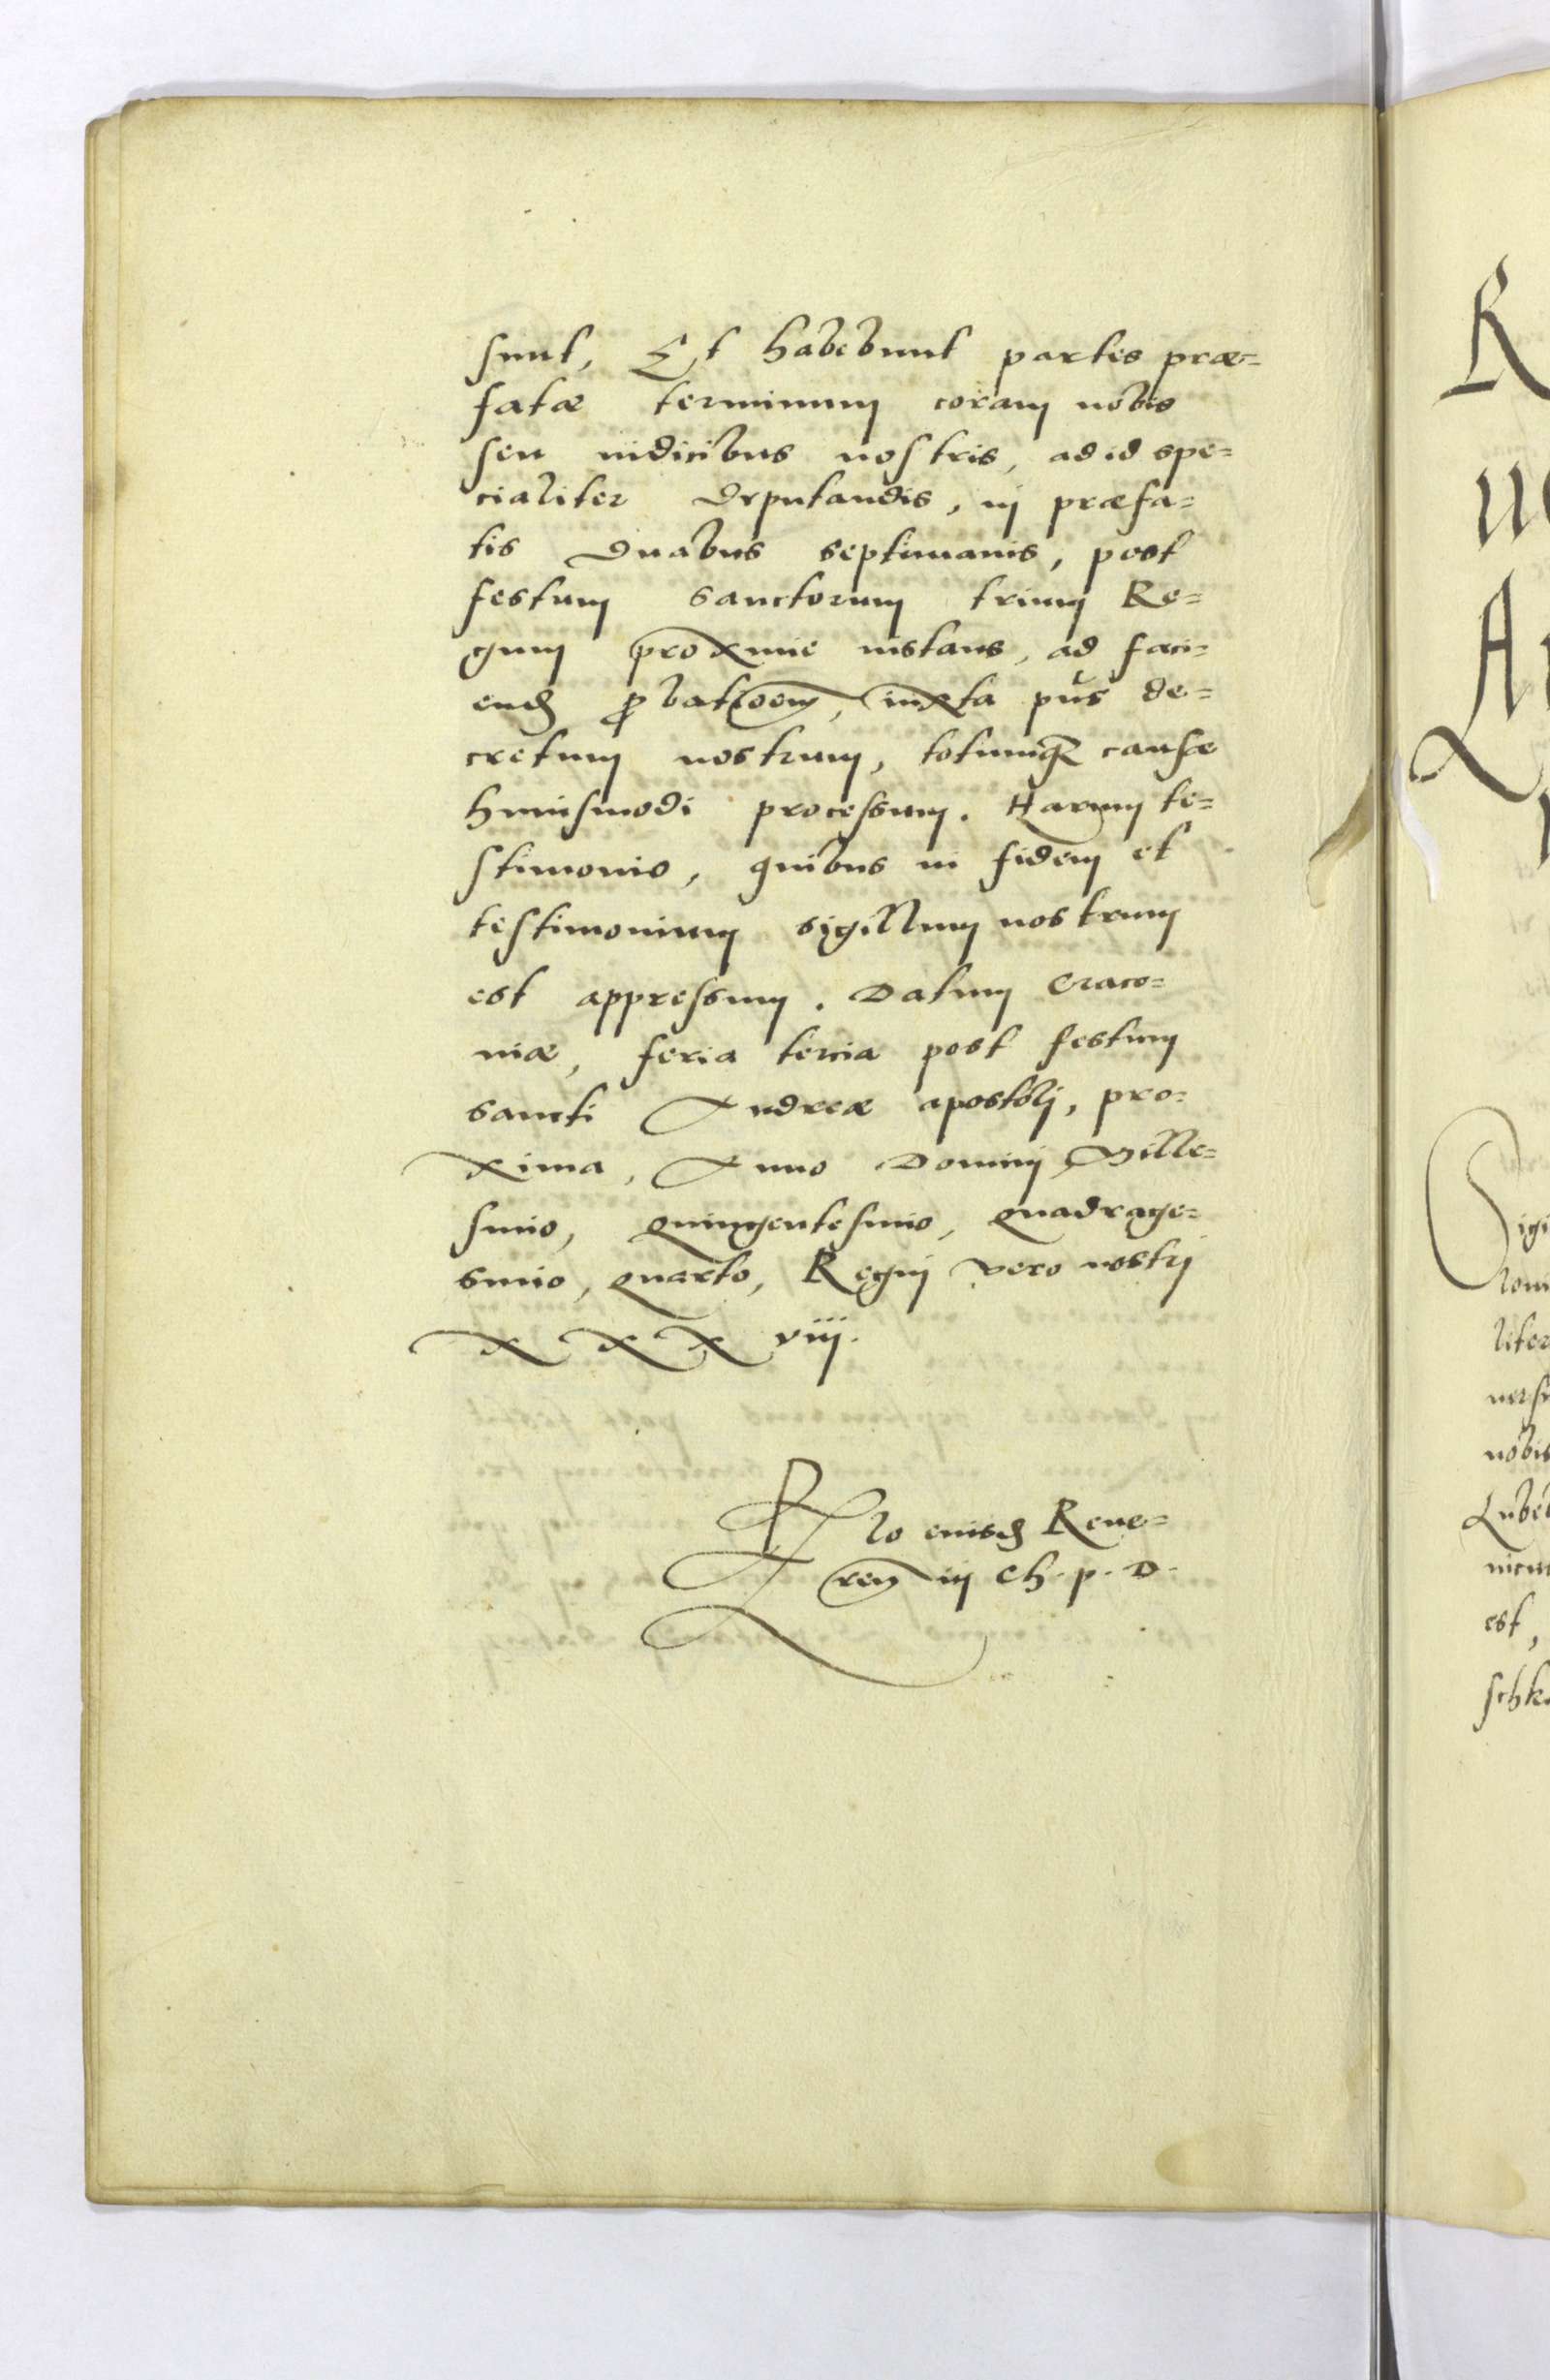 sunt, Et habebunt partes præ=
fatæ terminum coram nobis
seu iudicibus nostris, ad id spe=
cialiter deputandis, in præfa=
tis duabus septimanis, post
festum sanctorum trium Re=
gum proxime instans, ad faci=
end ꝓbatōem, iuxta pñs de=
cretum nostrum, totumqꝫ causæ
huiusmodi processum. Harum te=
stimonio, quibus in fidem et
testimonium sigillum nostrum
est appressum. Datum Craco=
niæ, feria tercia post festum
sancti Andreæ apostolj, pro=
xima, Anno Dominj Mille=
simo, quingentesimo, quadrage=
simo, quarto, Regnj vero nostrj
XXX viij.
Rlo eiusd Reue=
ren in Ch. p. D.
R
A
igi
loni
liter
uersi
nobis
Lubel
nicin
est,
schk